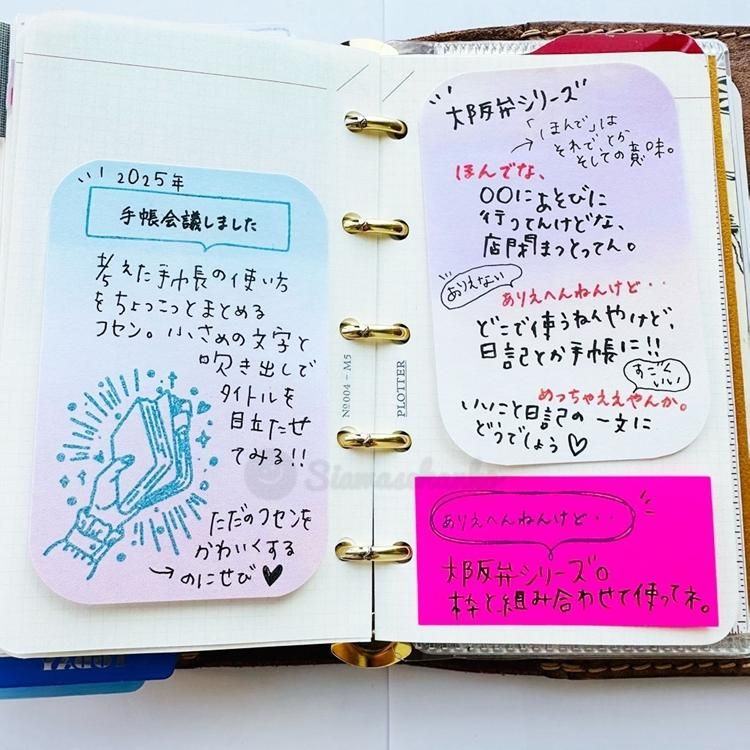 2025年
手帳会議しました
考えた手帳の使い方
をちょこっとまとめる
フセン。小さめの文字と
吹き出しで
タイトルを
目立たせ
てみる!!
ただのフセンを
かわいくする
→のにぜひ♥
Nº004 – M5
PLOTTER
大阪弁シリーズ
「ほんで」は
→それでとか
そしての意味。
ほんでな、
〇〇にあそびに
行ってんけどな、
店閉まっとってん。
ありえない
ありえへんねんけど・・
どこで使うねんやけど、
日記とか手帳に!!
すごく
いい
めっちゃええやんか。
いいこと日記の一文に
どうでしょう♡
ありえへんねんけど・・
大阪弁シリーズ。
枠と組み合わせて使ってネ。